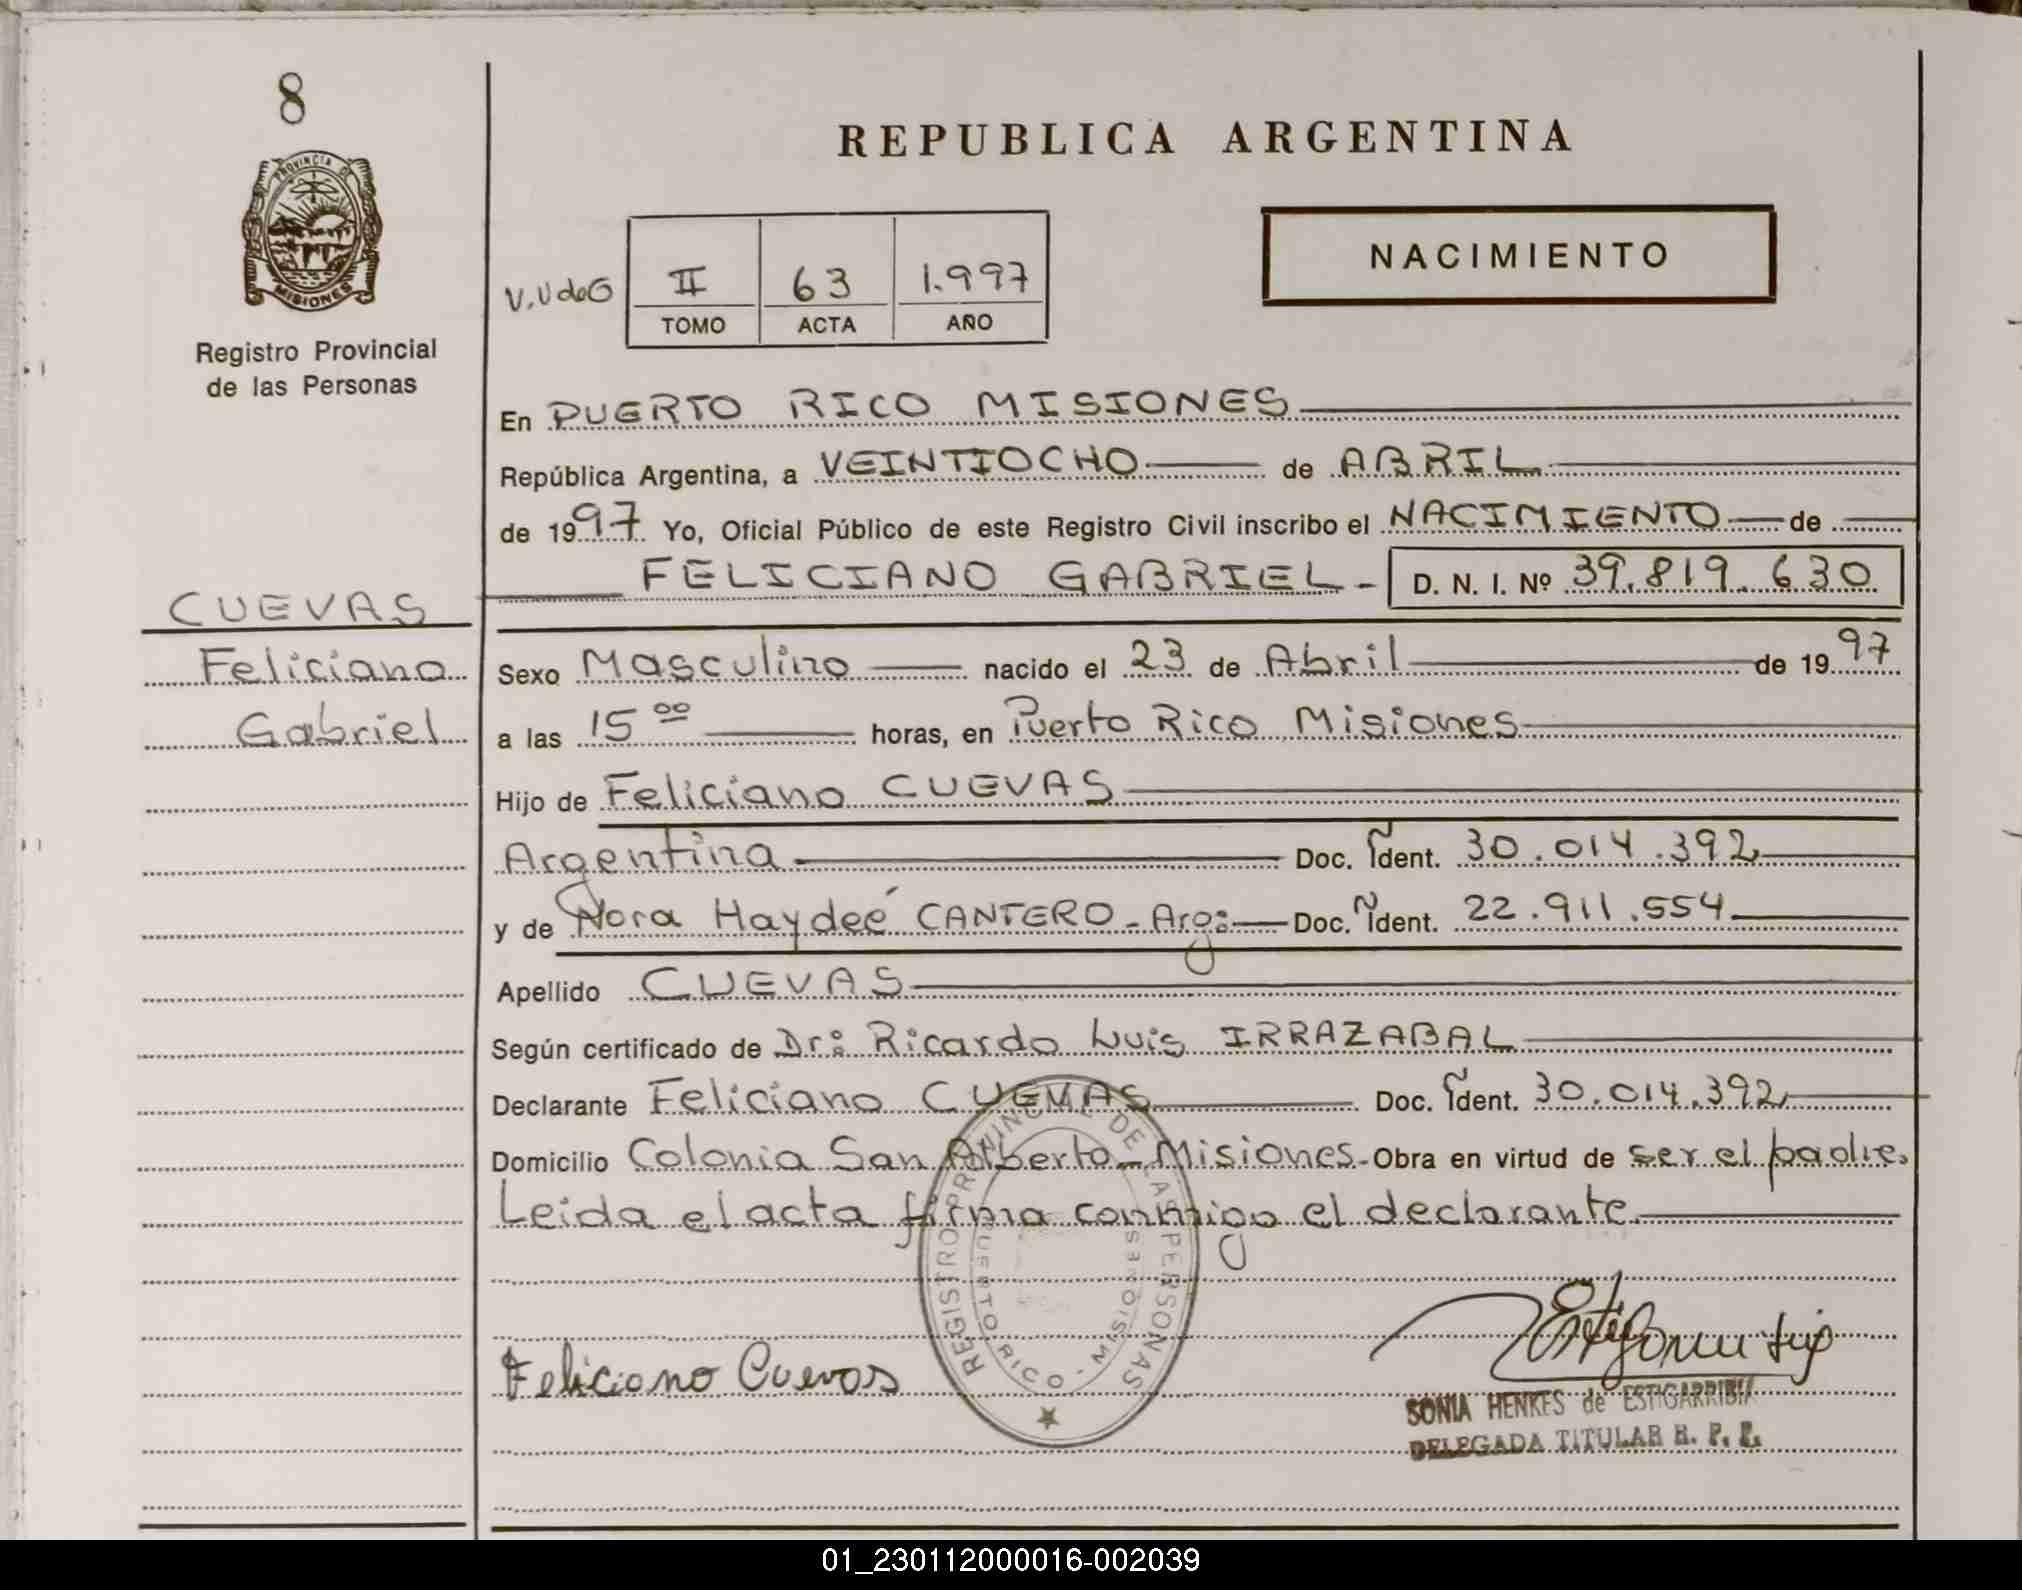 8
PROVINCIA DE
MISIONES
Registro Provincial
de las Personas
CUEVAS
Feliciano
Gabriel
REPUBLICA ARGENTINA
NACIMIENTO
V.U de G
II 63 1.997
TOMO ACTA AÑO
En PUERTO RICO MISIONES
República Argentina, a VEINTIOCHO de ABRIL
de 1997 Yo, Oficial Público de este Registro Civil inscribo el NACIMIENTO de
FELICIANO GABRIEL - D. N. I. Nº 39.819.630
Sexo Masculino nacido el 23 de Abril de 1997
a las 15 00 horas, en Puerto Rico Misiones
Hijo de Feliciano CUEVAS
Argentina Doc. Ident. 30.014.392
y de Nora Haydeé CANTERO - Arg: Doc. Ident. 22.911.554
Apellido CUEVAS
Según certificado de Dr: Ricardo Luis IRRAZABAL
Declarante Feliciano CUEVAS Doc. Ident. 30.014.392
Domicilio Colonia San Alberto - Misiones - Obra en virtud de ser el padre.
Leida el acta firma conmigo el declarante.
REGISTRO PROVINCIAL DE LAS PERSONAS
PUERTO RICO - MISIONES
Feliciano Cuevas
SONIA HENKES de ESTIGARRIBIA
DELEGADA TITULAR R. P. P.
01_230112000016-002039